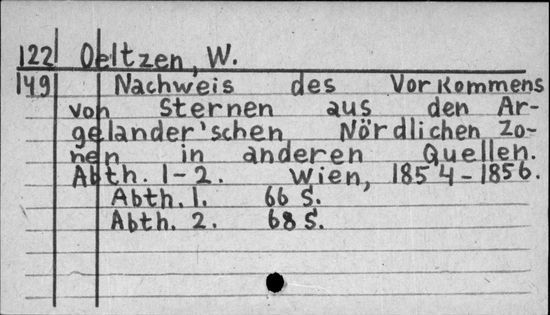 122 Oeltzen, W.
149 Nachweis des Vorkommens
von Sternen aus den Ar-
gelander'schen Nördlichen Zo-
nen in anderen Quellen.
Abth. 1-2. Wien, 1854-1856.
Abth. 1. 66 S.
Abth. 2. 68 S.